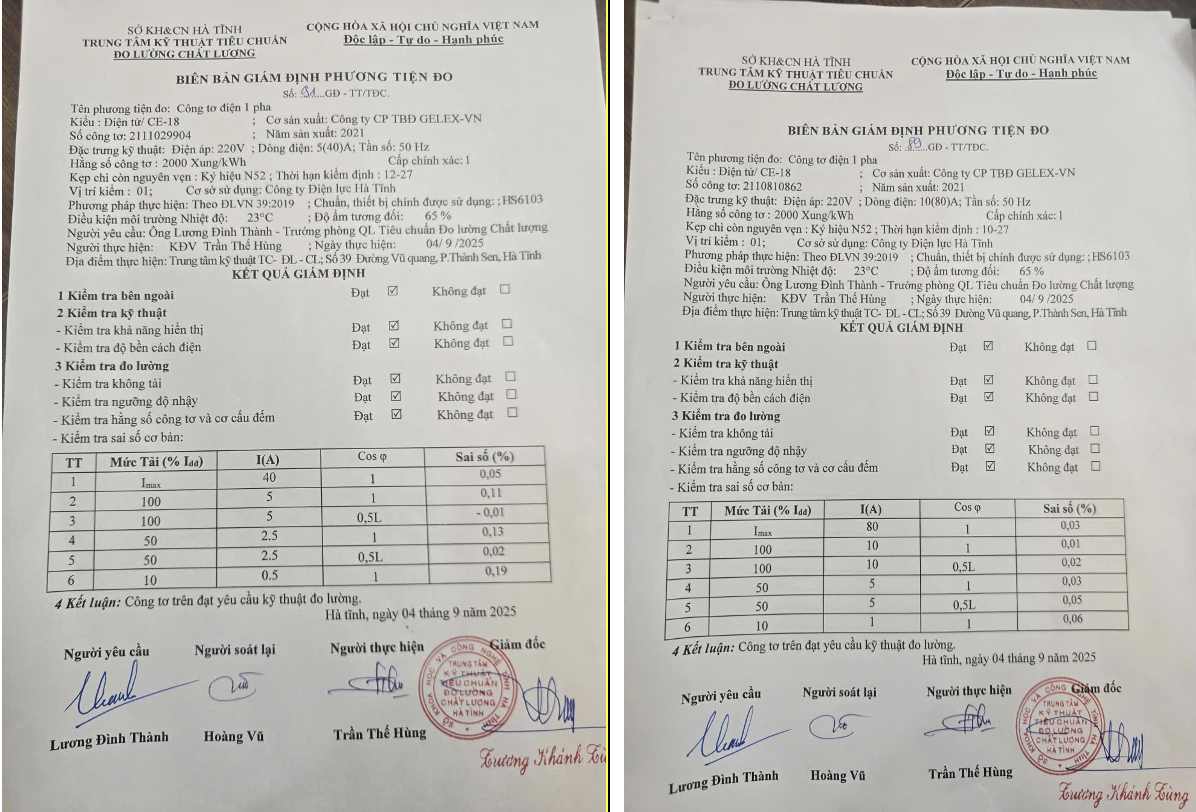 SỞ KH&CN HÀ TĨNH
TRUNG TÂM KỸ THUẬT TIÊU CHUẨN
ĐO LƯỜNG CHẤT LƯỢNG
CỘNG HÒA XÃ HỘI CHỦ NGHĨA VIỆT NAM
Độc lập - Tự do - Hạnh phúc
BIÊN BẢN GIÁM ĐỊNH PHƯƠNG TIỆN ĐO
Số: ....GĐ - TT/TĐC.
Tên phương tiện đo: Công tơ điện 1 pha
Kiểu : Điện tử/ CE-18 ; Cơ sản xuất: Công ty CP TBĐ GELEX-VN
Số công tơ: 2111029904 ; Năm sản xuất: 2021
Đặc trưng kỹ thuật: Điện áp: 220V ; Dòng điện: 5(40)A; Tần số: 50 Hz
Hằng số công tơ : 2000 Xung/kWh Cấp chính xác: 1
Kẹp chì còn nguyên vẹn : Ký hiệu N52 ; Thời hạn kiểm định : 12-27
Vị trí kiểm : 01; Cơ sở sử dụng: Công ty Điện lực Hà Tĩnh
Phương pháp thực hiện: Theo ĐLVN 39:2019 ; Chuẩn, thiết bị chính được sử dụng: ;HS6103
Điều kiện môi trường Nhiệt độ: 23°C ; Độ ẩm tương đối: 65 %
Người yêu cầu: Ông Lương Đình Thành - Trưởng phòng QL Tiêu chuẩn Đo lường Chất lượng
Người thực hiện: KĐV Trần Thế Hùng ; Ngày thực hiện: 04/ 9 /2025
Địa điểm thực hiện: Trung tâm kỹ thuật TC- ĐL - CL; Số 39 Đường Vũ quang, P.Thành Sen, Hà Tĩnh
KẾT QUẢ GIÁM ĐỊNH
1 Kiểm tra bên ngoài Đạt ☑ Không đạt ☐
2 Kiểm tra kỹ thuật
- Kiểm tra khả năng hiển thị Đạt ☑ Không đạt ☐
- Kiểm tra độ bền cách điện Đạt ☑ Không đạt ☐
3 Kiểm tra đo lường
- Kiểm tra không tải Đạt ☑ Không đạt ☐
- Kiểm tra ngưỡng độ nhậy Đạt ☑ Không đạt ☐
- Kiểm tra hằng số công tơ và cơ cấu đếm Đạt ☑ Không đạt ☐
- Kiểm tra sai số cơ bản:
TT Mức Tải (% Idđ) I(A) Cos φ Sai số (%)
1 Imax 40 1 0,05
2 100 5 1 0,11
3 100 5 0,5L - 0,01
4 50 2.5 1 0,13
5 50 2.5 0,5L 0,02
6 10 0.5 1 0,19
4 Kết luận: Công tơ trên đạt yêu cầu kỹ thuật đo lường.
Hà tĩnh, ngày 04 tháng 9 năm 2025
Người yêu cầu Người soát lại Người thực hiện Giám đốc
TRUNG TÂM
KỸ THUẬT
TIÊU CHUẨN
ĐO LƯỜNG
CHẤT LƯỢNG
HÀ TĨNH
Lương Đình Thành Hoàng Vũ Trần Thế Hùng
Trương Khánh
SỞ KH&CN HÀ TĨNH
TRUNG TÂM KỸ THUẬT TIÊU CHUẨN
ĐO LƯỜNG CHẤT LƯỢNG
CỘNG HÒA XÃ HỘI CHỦ NGHĨA VIỆT NAM
Độc lập - Tự do - Hạnh phúc
BIÊN BẢN GIÁM ĐỊNH PHƯƠNG TIỆN ĐO
Số: 89GĐ - TT/TĐC.
Tên phương tiện đo: Công tơ điện 1 pha
Kiểu : Điện tử/ CE-18 ; Cơ sản xuất: Công ty CP TBĐ GELEX-VN
Số công tơ: 2110810862 ; Năm sản xuất: 2021
Đặc trưng kỹ thuật: Điện áp: 220V ; Dòng điện: 10(80)A; Tần số: 50 Hz
Hằng số công tơ : 2000 Xung/kWh Cấp chính xác: 1
Kẹp chì còn nguyên vẹn : Ký hiệu N52 ; Thời hạn kiểm định : 10-27
Vị trí kiểm : 01; Cơ sở sử dụng: Công ty Điện lực Hà Tĩnh
Phương pháp thực hiện: Theo ĐLVN 39:2019 ; Chuẩn, thiết bị chính được sử dụng: ;HS6103
Điều kiện môi trường Nhiệt độ: 23°C ; Độ ẩm tương đối: 65 %
Người yêu cầu: Ông Lương Đình Thành - Trưởng phòng QL Tiêu chuẩn Đo lường Chất lượng
Người thực hiện: KĐV Trần Thế Hùng ; Ngày thực hiện: 04/ 9 /2025
Địa điểm thực hiện: Trung tâm kỹ thuật TC- ĐL - CL; Số 39 Đường Vũ quang, P.Thành Sen, Hà Tĩnh
KẾT QUẢ GIÁM ĐỊNH
1 Kiểm tra bên ngoài Đạt ☑ Không đạt ☐
2 Kiểm tra kỹ thuật
- Kiểm tra khả năng hiển thị Đạt ☑ Không đạt ☐
- Kiểm tra độ bền cách điện Đạt ☑ Không đạt ☐
3 Kiểm tra đo lường
- Kiểm tra không tải Đạt ☑ Không đạt ☐
- Kiểm tra ngưỡng độ nhậy Đạt ☑ Không đạt ☐
- Kiểm tra hằng số công tơ và cơ cấu đếm Đạt ☑ Không đạt ☐
- Kiểm tra sai số cơ bản:
TT Mức Tải (% Idđ) I(A) Cos φ Sai số (%)
1 Imax 80 1 0,03
2 100 10 1 0,01
3 100 10 0,5L 0,02
4 50 5 1 0,03
5 50 5 0,5L 0,05
6 10 1 1 0,06
4 Kết luận: Công tơ trên đạt yêu cầu kỹ thuật đo lường.
Hà tĩnh, ngày 04 tháng 9 năm 2025
Người yêu cầu Người soát lại Người thực hiện Giám đốc
TRUNG TÂM
KỸ THUẬT
TIÊU CHUẨN
ĐO LƯỜNG
CHẤT LƯỢNG
HÀ TĨNH
Lương Đình Thành Hoàng Vũ Trần Thế Hùng
Trương Khánh Tùng